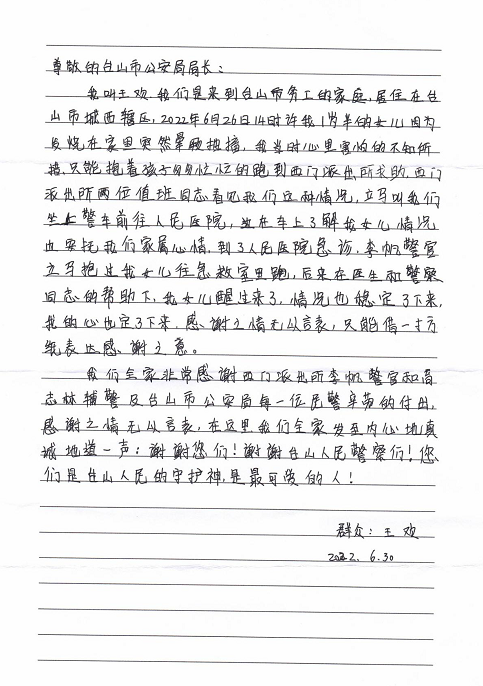 尊敬的台山市公安局局长：
我叫王欢，我们是来到台山市务工的家庭，居住在台
山市城西辖区，2022年6月26日14时许我1岁半的女儿因为
发烧在家里突然晕厥抽搐，我当时心里害怕的不知所
措，只能抱着孩子匆匆忙忙的跑到西门派出所求助，西门
派出所两位值班同志看见我们这种情况，立马叫我们
坐上警车前往人民医院，并在车上了解我女儿情况
也安抚我们家属心情，到了人民医院急诊，李帆警官
立马抱过我女儿往急救室里跑，后来在医生和警察
同志的帮助下，我女儿醒过来了，情况也稳定了下来，
我的心也定了下来，感谢之情无以言表，只能借一寸方
纸表达感谢之意。
我们全家非常感谢西门派出所李帆警官和
志林辅警及台山市公安局每一位民警辛劳的付出，
感谢之情无以言表，在这里我们全家发至内心地真
诚地道一声：谢谢您们！谢谢台山人民警察们！您
们是台山人民的守护神，是最可爱的人！
群众：王欢
2022.6.30